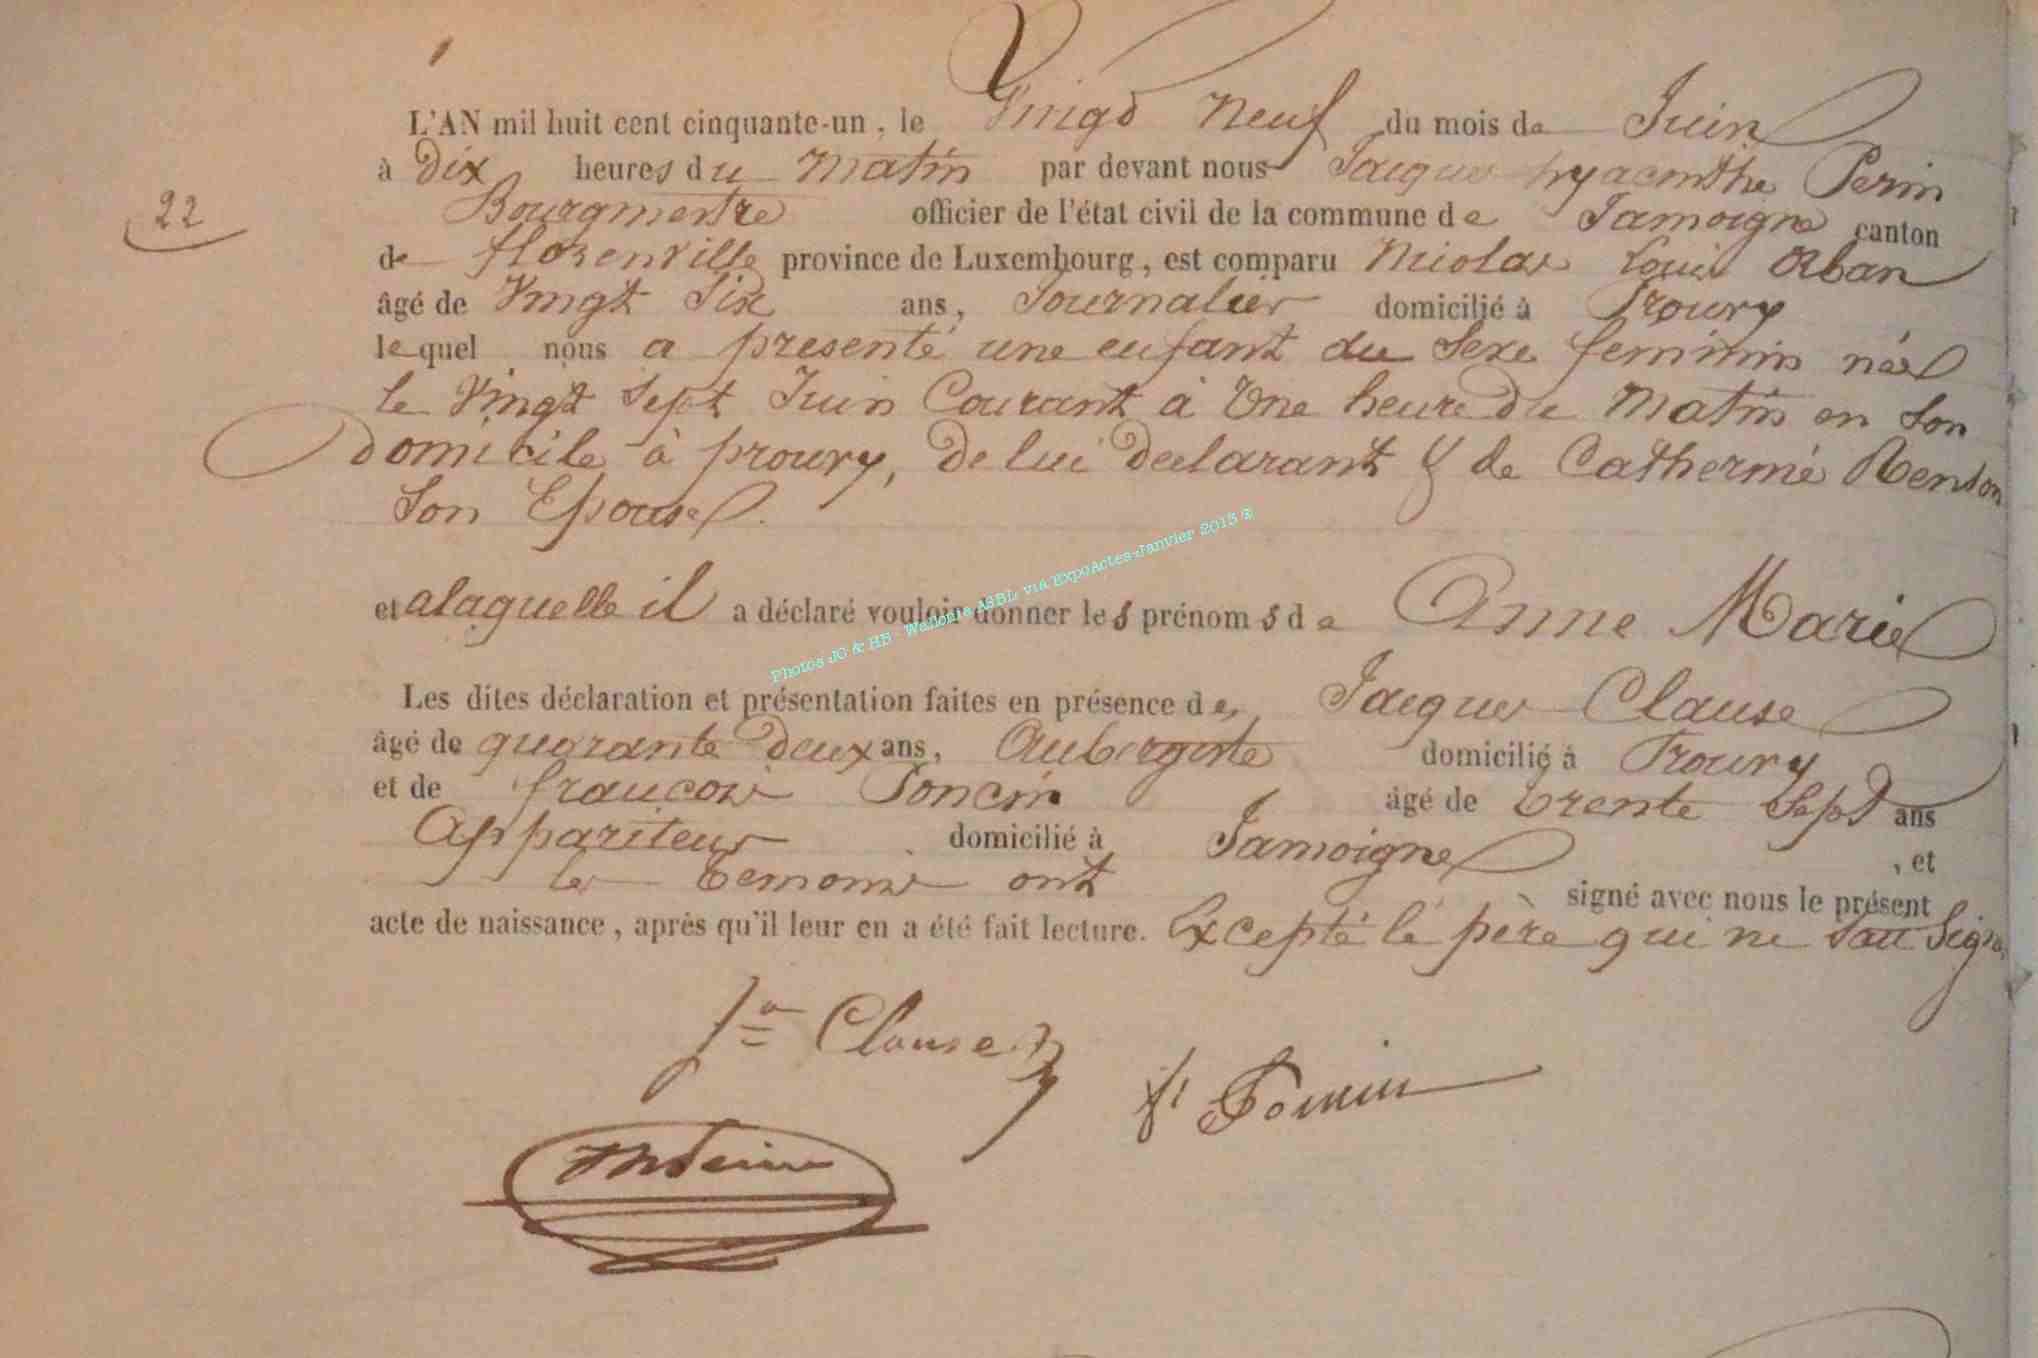 L'AN mil huit cent cinquante-un, le Vingt Neuf du mois de Juin
à Dix heures du Matin par devant nous Jacques hyacinthe Perin
22
Bourgmestre officier de l'état civil de la commune de Jamoigne canton
de florenville province de Luxembourg, est comparu Nicolas Louis Orban
âgé de Vingt Six ans, Journalier domicilié à Prouvy
lequel nous a presenté une enfant du Sexe feminin née
le Vingt Sept Juin Courant à Une heure du Matin en Son
domicile à prouvy, De lui declarant & de Catherine Renson
Son Epouse.
et alaquelle il a déclaré vouloir donner les prénoms de Anne Marie
Photos JC & HB Wallonia ASBL via ExpoActes-Janvier 2015 ®
Les dites déclaration et présentation faites en présence de, Jacques Clause
âgé de quarante Deux ans, Aubergiste domicilié à Prouvy
et de francois Poncin âgé de trente Sept ans
Appariteur domicilié à Jamoigne, et
les temoins ont signé avec nous le présent
acte de naissance, après qu'il leur en a été fait lecture. Excepté le père qui ne Sait Signer
Clause
Poncin